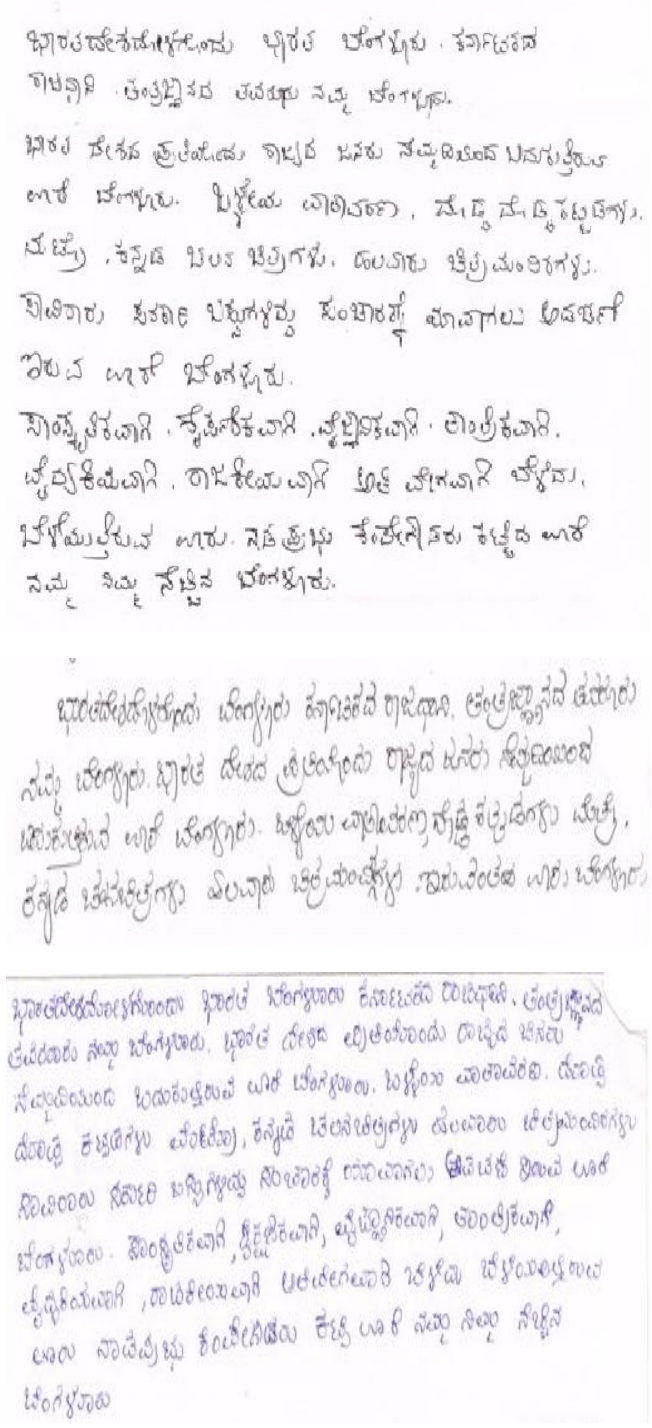 ಭಾರತದೇಶದೊಳಗೊಂದು ಭಾರತ ಬೆಂಗಳೂರು. ಕರ್ನಾಟಕದ
ರಾಜಧಾನಿ. ತಂತ್ರಜ್ಞಾನದ ತವರೂರು ನಮ್ಮ ಬೆಂಗಳೂರು.
ಭಾರತ ದೇಶದ ಪ್ರತಿಯೊಂದು ರಾಜ್ಯದ ಜನರು ನೆಮ್ಮದಿಯಿಂದ ಬದುಕುತ್ತಿರುವ
ಊರೆ ಬೆಂಗಳೂರು. ಒಳ್ಳೇಯ ವಾತಾವರಣ, ದೊಡ್ಡ ದೊಡ್ಡ ಕಟ್ಟಡಗಳು,
ಮೆಟ್ರೊ, ಕನ್ನಡ ಚಲನ ಚಿತ್ರಗಳು, ಹಲವಾರು ಚಿತ್ರಮಂದಿರಗಳು.
ಸಾವಿರಾರು ಸರಕಾರಿ ಬಸ್ಸುಗಳಿದ್ದು ಸಂಚಾರಕ್ಕೆ ಯಾವಾಗಲು ಅಡಚಣೆ
ಇರುವ ಊರೆ ಬೆಂಗಳೂರು.
ಸಾಂಸ್ಕೃತಿಕವಾಗಿ, ಶೈಕ್ಷಣಿಕವಾಗಿ, ವೈಜ್ಞಾನಿಕವಾಗಿ, ತಾಂತ್ರಿಕವಾಗಿ,
ವೈದ್ಯಕಿಯವಾಗಿ, ರಾಜಕೀಯವಾಗಿ ಅತಿ ವೇಗವಾಗಿ ಬೆಳೆದು,
ಬೆಳೆಯುತ್ತಿರುವ ಊರು. ನಾಡಪ್ರಭು ಕೆಂಪೇಗೌಡರು ಕಟ್ಟಿದ ಊರೆ
ನಮ್ಮ ನಿಮ್ಮ ನೆಚ್ಚಿನ ಬೆಂಗಳೂರು.
ಭಾರತದೇಶದೊಳಗೊಂದು ಬೆಂಗಳೂರು ಕರ್ನಾಟಕದ ರಾಜಧಾನಿ. ತಂತ್ರಜ್ಞಾನದ ತವರೂರು
ನಮ್ಮ ಬೆಂಗಳೂರು. ಭಾರತ ದೇಶದ ಪ್ರತಿಯೊಂದು ರಾಜ್ಯದ ಜನರು ನೆಮ್ಮದಿಯಿಂದ
ಬದುಕುತ್ತಿರುವ ಊರೆ ಬೆಂಗಳೂರು. ಒಳ್ಳೆಯ ವಾತಾವರಣ, ದೊಡ್ಡ ಕಟ್ಟಡಗಳು ಮೆಟ್ರೊ,
ಕನ್ನಡ ಚಲನಚಿತ್ರಗಳು ಹಲವಾರು ಚಿತ್ರಮಂದಿರಗಳು ಇರುವಂತಹ ಊರು ಬೆಂಗಳೂರು
ಭಾರತದೇಶದೊಳಗೊಂದು ಭಾರತ ಬೆಂಗಳೂರು ಕರ್ನಾಟಕದ ರಾಜಧಾನಿ. ತಂತ್ರಜ್ಞಾನದ
ತವರೂರು ನಮ್ಮ ಬೆಂಗಳೂರು. ಭಾರತ ದೇಶದ ಪ್ರತಿಯೊಂದು ರಾಜ್ಯದ ಜನರು
ನೆಮ್ಮದಿಯಿಂದ ಬದುಕುತ್ತಿರುವ ಊರೆ ಬೆಂಗಳೂರು. ಒಳ್ಳೆಯ ವಾತಾವರಣ. ದೊಡ್ಡ
ದೊಡ್ಡ ಕಟ್ಟಡಗಳು ಮೆಟ್ರೊ, ಕನ್ನಡ ಚಲನಚಿತ್ರಗಳು ಹಲವಾರು ಚಿತ್ರಮಂದಿರಗಳು
ಸಾವಿರಾರು ಸರ್ಕಾರಿ ಬಸ್ಸುಗಳಿದ್ದು ಸಂಚಾರಕ್ಕೆ ಯಾವಾಗಲು ಅಡಚಣೆ ಇರುವ ಊರೆ
ಬೆಂಗಳೂರು. ಸಾಂಸ್ಕೃತಿಕವಾಗಿ, ಶೈಕ್ಷಣಿಕವಾಗಿ, ವೈಜ್ಞಾನಿಕವಾಗಿ, ತಾಂತ್ರಿಕವಾಗಿ,
ವೈದ್ಯಕಿಯವಾಗಿ, ರಾಜಕೀಯವಾಗಿ ಅತಿವೇಗವಾಗಿ ಬೆಳೆದು ಬೆಳೆಯುತ್ತಿರುವ
ಊರು ನಾಡಪ್ರಭು ಕೆಂಪೇಗೌಡರು ಕಟ್ಟಿ ಊರೆ ನಮ್ಮ ನಿಮ್ಮ ನೆಚ್ಚಿನ
ಬೆಂಗಳೂರು